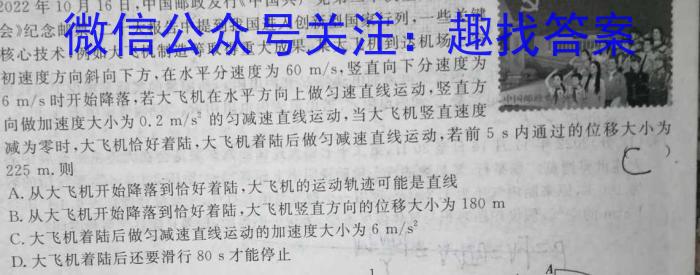 2022年10月16日,中国邮政发行《中国共
会》纪念邮
微信公众号关注：趣找答案
核心技术
初速度方向斜向下方,在水平分速度为 60 m/s,竖直向下分速度为
6 m/s 时开始降落,若大飞机在水平方向上做匀速直线运动,竖直方
向做加速度大小为 0.2 m/s² 的匀减速直线运动,当大飞机竖直速度
减为零时,大飞机恰好着陆,大飞机着陆后做匀减速直线运动,若前 5 s 内通过的位移大小为
225 m.则
C )
A. 从大飞机开始降落到恰好着陆,大飞机的运动轨迹可能是直线
B. 从大飞机开始降落到恰好着陆,大飞机竖直方向的位移大小为 180 m
C. 大飞机着陆后做匀减速直线运动的加速度大小为 6 m/s²
D. 大飞机着陆后还要滑行 80 s 才能停止
A